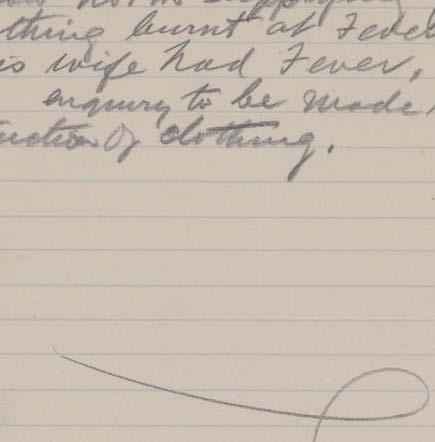 supplying
thing burnt at Fever
is wife had Fever,
enquiry to be made
uction of clothing.